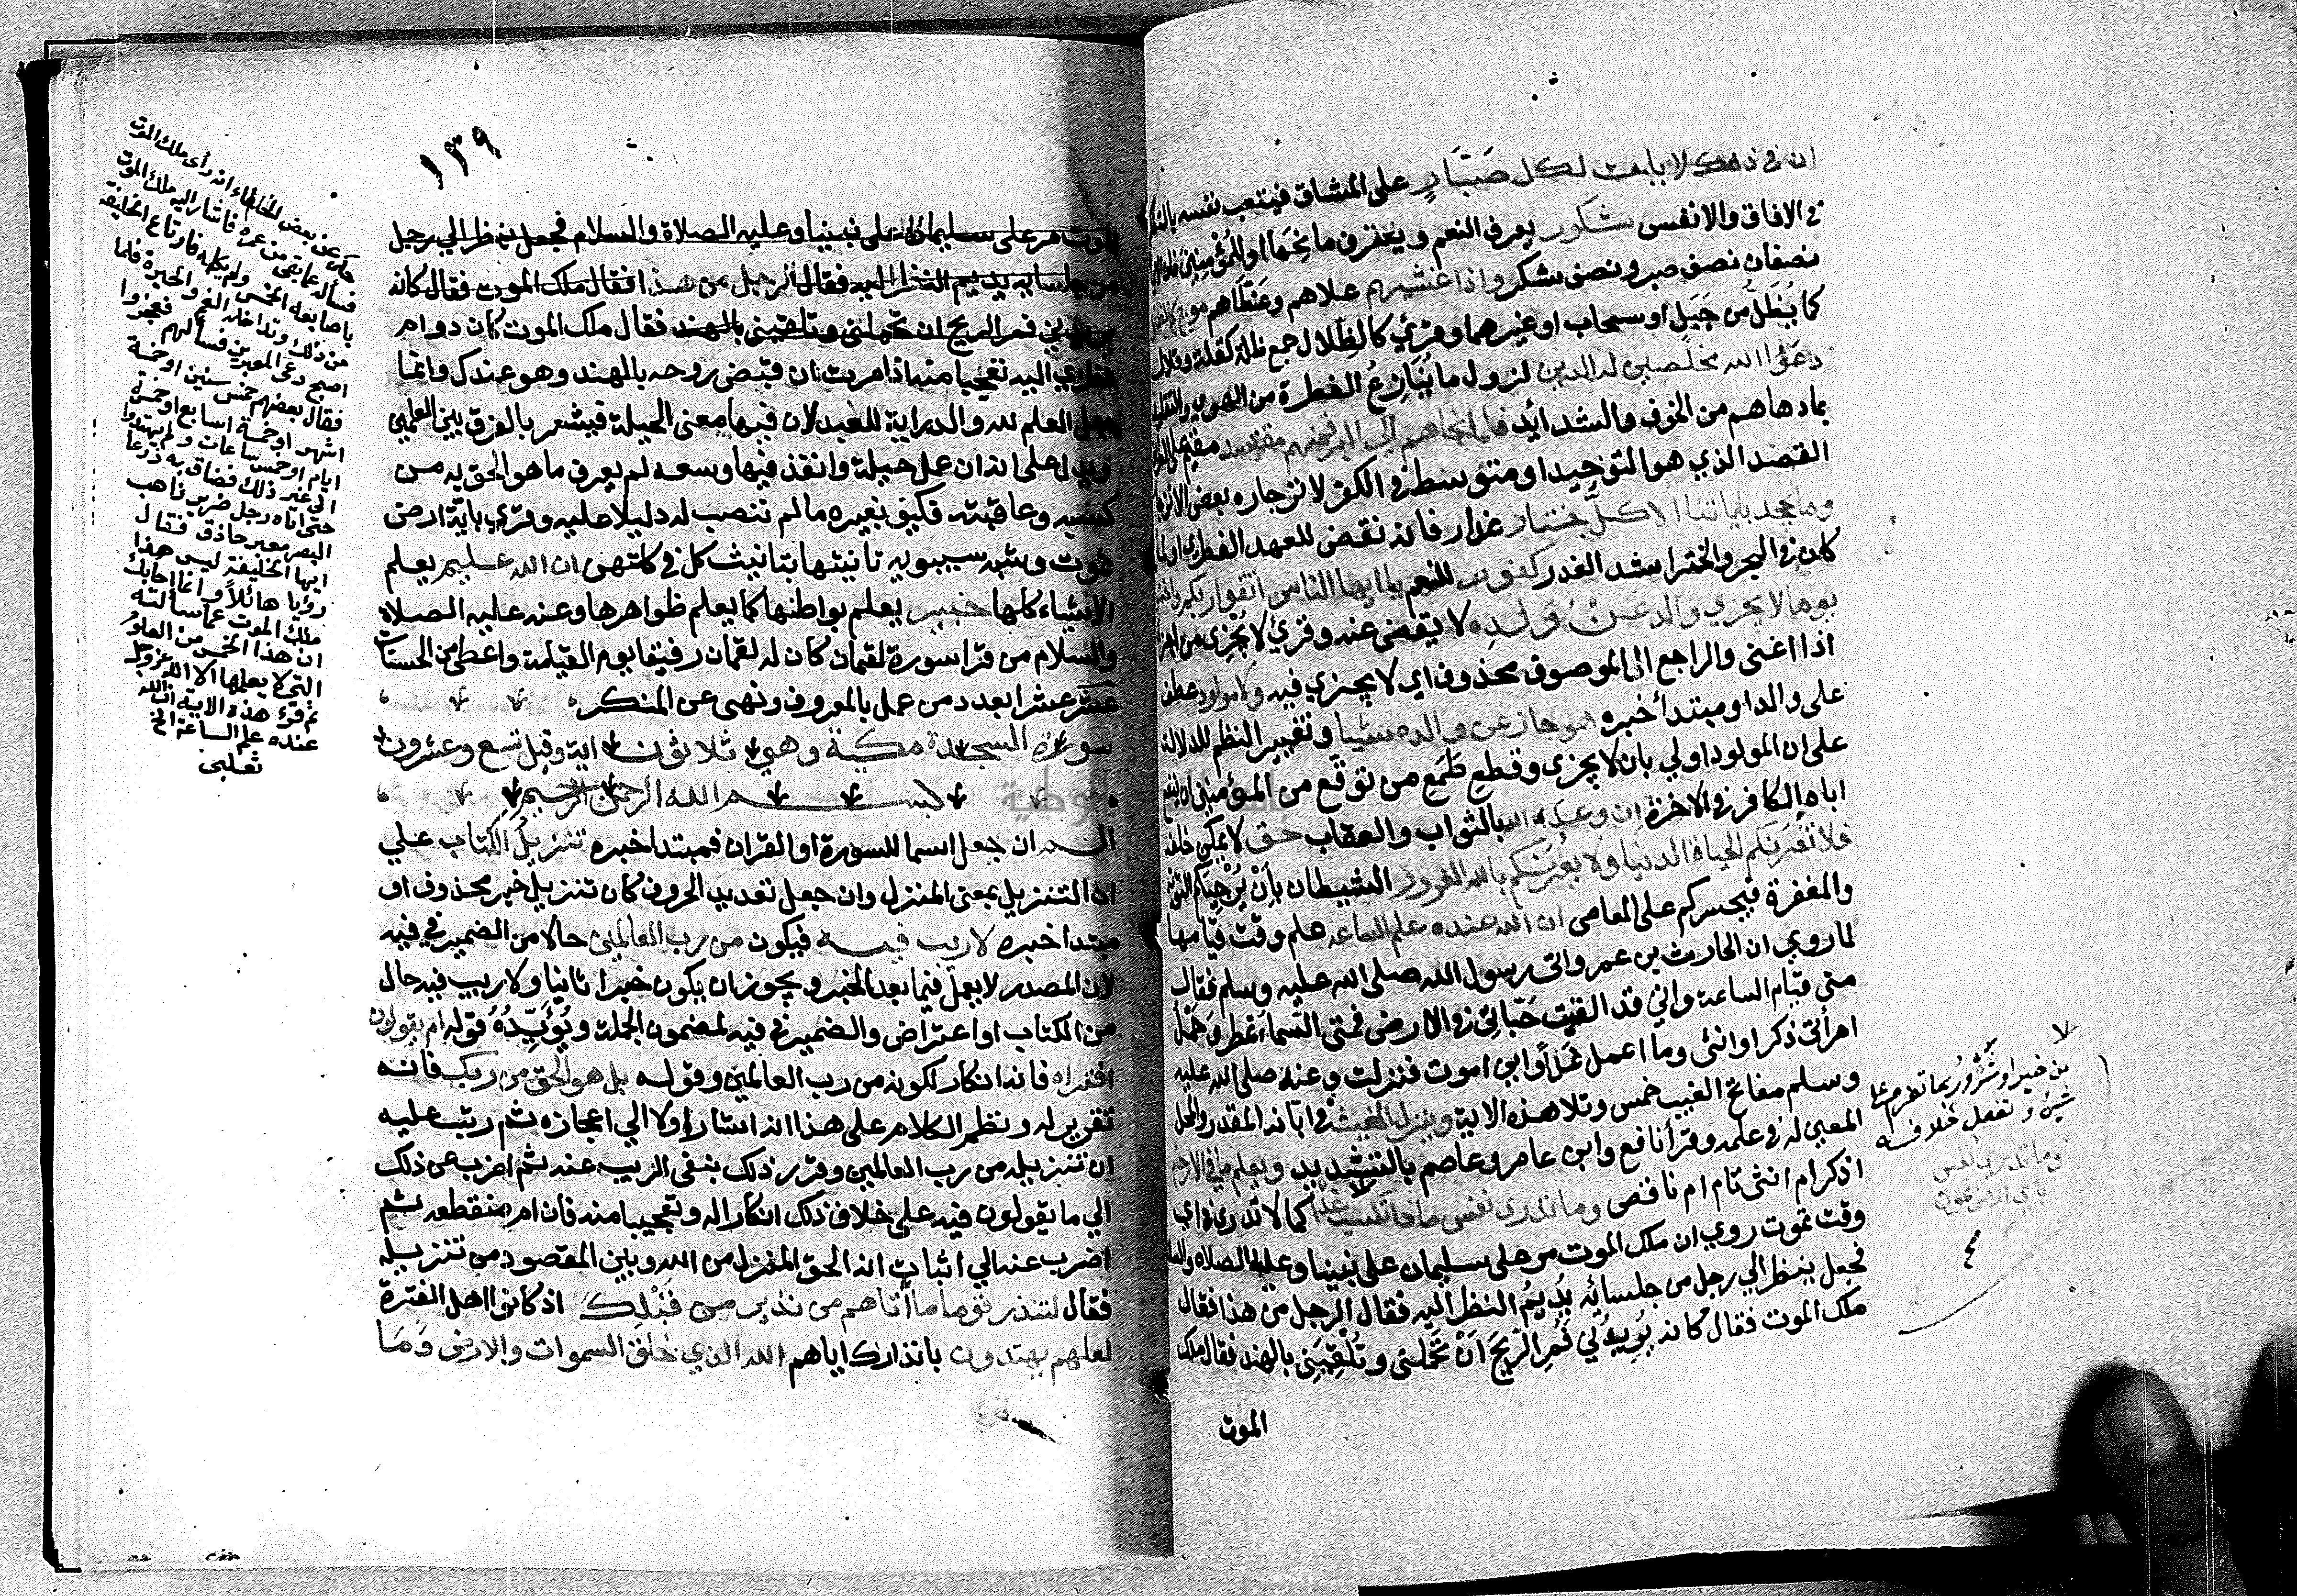 ان في ذلك لايات لكل صَبَّارٍ على المشاق فيتعب نفسه بالتفكر
في الافاق والانفس شكور يعرف النعم ويتعرف مانحَها او للمؤمنين فان الايمان
نصفان نصف صبر ونصف شكر واذا غشيهم علاهم وغطاهم موج كالظلل
كما يُظَلُّ من جَبَلٍ او سحاب او غيرهما وقرئ كالظِلال جمع ظلة كقلة وقلال
دعَوُا الله مخلصين له الدين لزوال ما يُنَازِعُ الفطرة من الهوى والتقليد
بما دهاهم من الخوف والشدائد فلما نجاهم الي البر فمنهم مقتصد مقيم على الطريق
القصد الذي هو التوحيد او متوسط في الكفر لانزجاره بعض الانزجار
وما يجحد باياتنا الا كلّ ختار غدار فانه نقض للعهد الفطري او لما
كان في البحر والختر اشد الغدر كفور للنعم يا ايها الناس اتقوا ربكم واخشوا
يوما لا يجزي والد عَنْ وَلَدِه لا يقضي عنه وقرئ لا يُجْزِئ من اجزا
اذا اغنى والراجع الى الموصوف محذوف اي لا يجزي فيه ولا مولود عطف
على والد او مبتدأ خبره هو جاز عن والده شيئا وتغيير النظم للدلالة
على ان المولود اولي بان لا يجزى وقطعِ طَمَعِ من توقّع من المؤمنين ان ينفع
اباه الكافر في الاخرة ان وعد الله بالثواب والعقاب حق لا يمكن خلفه
فلا تغرنكم الحياة الدنيا ولا يغرنكم بالله الغرور الشيطان بِأنْ يُرَجِّيَكم التوبة
والمغفرة فيجسركم على المعاصي ان الله عنده علم الساعة علم وقت قيامها
لما روي ان الحارث بن عمرو اتى رسول الله صلى الله عليه وسلم فقال
متى قيام الساعة واني قد القيت حَبّاتي في الارض فمتى السماء تمطر وحَمْلُ
امرأتي ذكر او انثى وما اعمل غَداً وأين اموت فنزلت وعنه صلى الله عليه
وسلم مفاتح الغيب خمس وتلا هذه الاية وينزل الغيث في ابّانه المقدر والمحل
المعين له في علمه وقرأ نافع وابن عامر وعاصم بالتشديد ويعلم ما في الارحام
اذكر ام انثى تام ام ناقص وما تدري نفس ماذا تكسب غدا كما لا تدري في اي
وقت تموت روي ان ملك الموت مر على سليمان على نبينا وعليه الصلاة والسلام
فجعل ينظر الي رجل من جلسائه يُديمُ النظر اليه فقال الرجل من هذا فقال
ملك الموت فقال كانه يُرِيدُني فَمُرِ الرّيحَ اَنْ تحملني وتُلقِيَنِي بالهند فقال ملك
الموت
من خير او شرّ ورُبما تعزم على
شيئ وتفعل خلافه
وما تدري نفس
باي ارض تموت
١٣٩
الموت مر على سليمان على نبينا وعليه الصلاة والسلام فجعل ينظر الي رجل
من جلسائه يديم النظر اليه فقال الرجل من هذا فقال ملك الموت فقال كانه
يريدني فمر الريح ان تحملني وتلقيني بالهند فقال ملك الموت كان دوام
نظري اليه تعجبا منه اذ امرت ان اقبض روحه بالهند وهو عندك وانما
جعل العلم لله والدراية للعبد لان فيها معنى الحيلة فيشعر بالفرق بين العلمين
ويدل على انه ان عمل حيلة وانفذ فيها وسعه لم يعرف ما هو الحق به من
كسبه وعاقبته فكيف بغيره ما لم تنصب له دليلا عليه وقرئ باية ارض
تموت وشبه سيبويه تانيثها بتانيث كل في كلتهن ان الله عليم يعلم
الاشياء كلها خبير يعلم بواطنها كما يعلم ظواهرها وعنه عليه الصلاة
والسلام من قرا سورة لقمان كان له لقمان رفيقا يوم القيمة واعطى من الحسنات
عشر عشرا بعدد من عمل بالمعروف ونهى عن المنكر
سورة السجدة مكية وهي ثلاثون اية وقيل تسع وعشرون
بسم الله الرحمن الرحيم
الم ان جعل اسما للسورة او القران فمبتدا خبره تنزيل الكتاب علي
ان التنزيل بمعنى المنزل وان جعل تعديد الحروف كان تنزيل خبر محذوف او
مبتدا خبره لا ريب فيه فيكون من رب العالمين حالا من الضمير في فيه
لان المصدر لا يعمل فيما بعد الخبر ويجوز ان يكون خبرا ثانيا ولا ريب فيه حال
من الكتاب او اعتراض والضمير في فيه لمضمون الجملة ويُؤيّدُهُ قوله ام يقولون
افتراه فانه انكار لكونه من رب العالمين وقوله بل هو الحق من ربك فانه
تقرير له ونظم الكلام على هذا انه اشار اولا الي اعجازه ثم رتب عليه
ان تنزيله من رب العالمين وقرر ذلك بنفي الريب عنه ثم اضرب عن ذلك
الي ما يقولون فيه على خلاف ذلك انكارا له وتعجيبا منه فان ام منقطعة ثم
اضرب عنه الي اثبات انه الحق المنزل من الله وبين المقصود من تنزيله
فقال لتنذر قوما ما اتاهم من نذير من قَبْلِكَ اذ كانوا اهل الفترة
لعلهم يهتدون بانذارك اياهم الله الذي خلق السموات والارض وَمَا
حكي عن بعض الخلفاء انه رأى ملك الموت
فسأله عما بقي من عمره فاشار اليه ملك الموت
باصابعه الخمس ولم يكلمه فارتاع الخليفة
من ذلك وتداخله الغم والحيرة فلما
اصبح دعى المعبرين فسألهم فعجزوا
فقال بعضهم خمس سنين او خمسة
اشهر او خمسة اسابيع او خمسة
ايام او خمس ساعات ولم يهتدوا
الى غير ذلك فضاق به ذرعا
حتى اتاه رجل ضرير ذاهب
البصر معبر حاذق فقال
ايها الخليفة ليس هذا
رؤيا هائلاً وانما اجابك
ملك الموت عما سألته
ان هذا الخمس من العلوم
التي لا يعلمها الا الله عز وجل
ثم قرئ هذه الاية ان الله
عنده علم الساعة الخ
ثعلبي